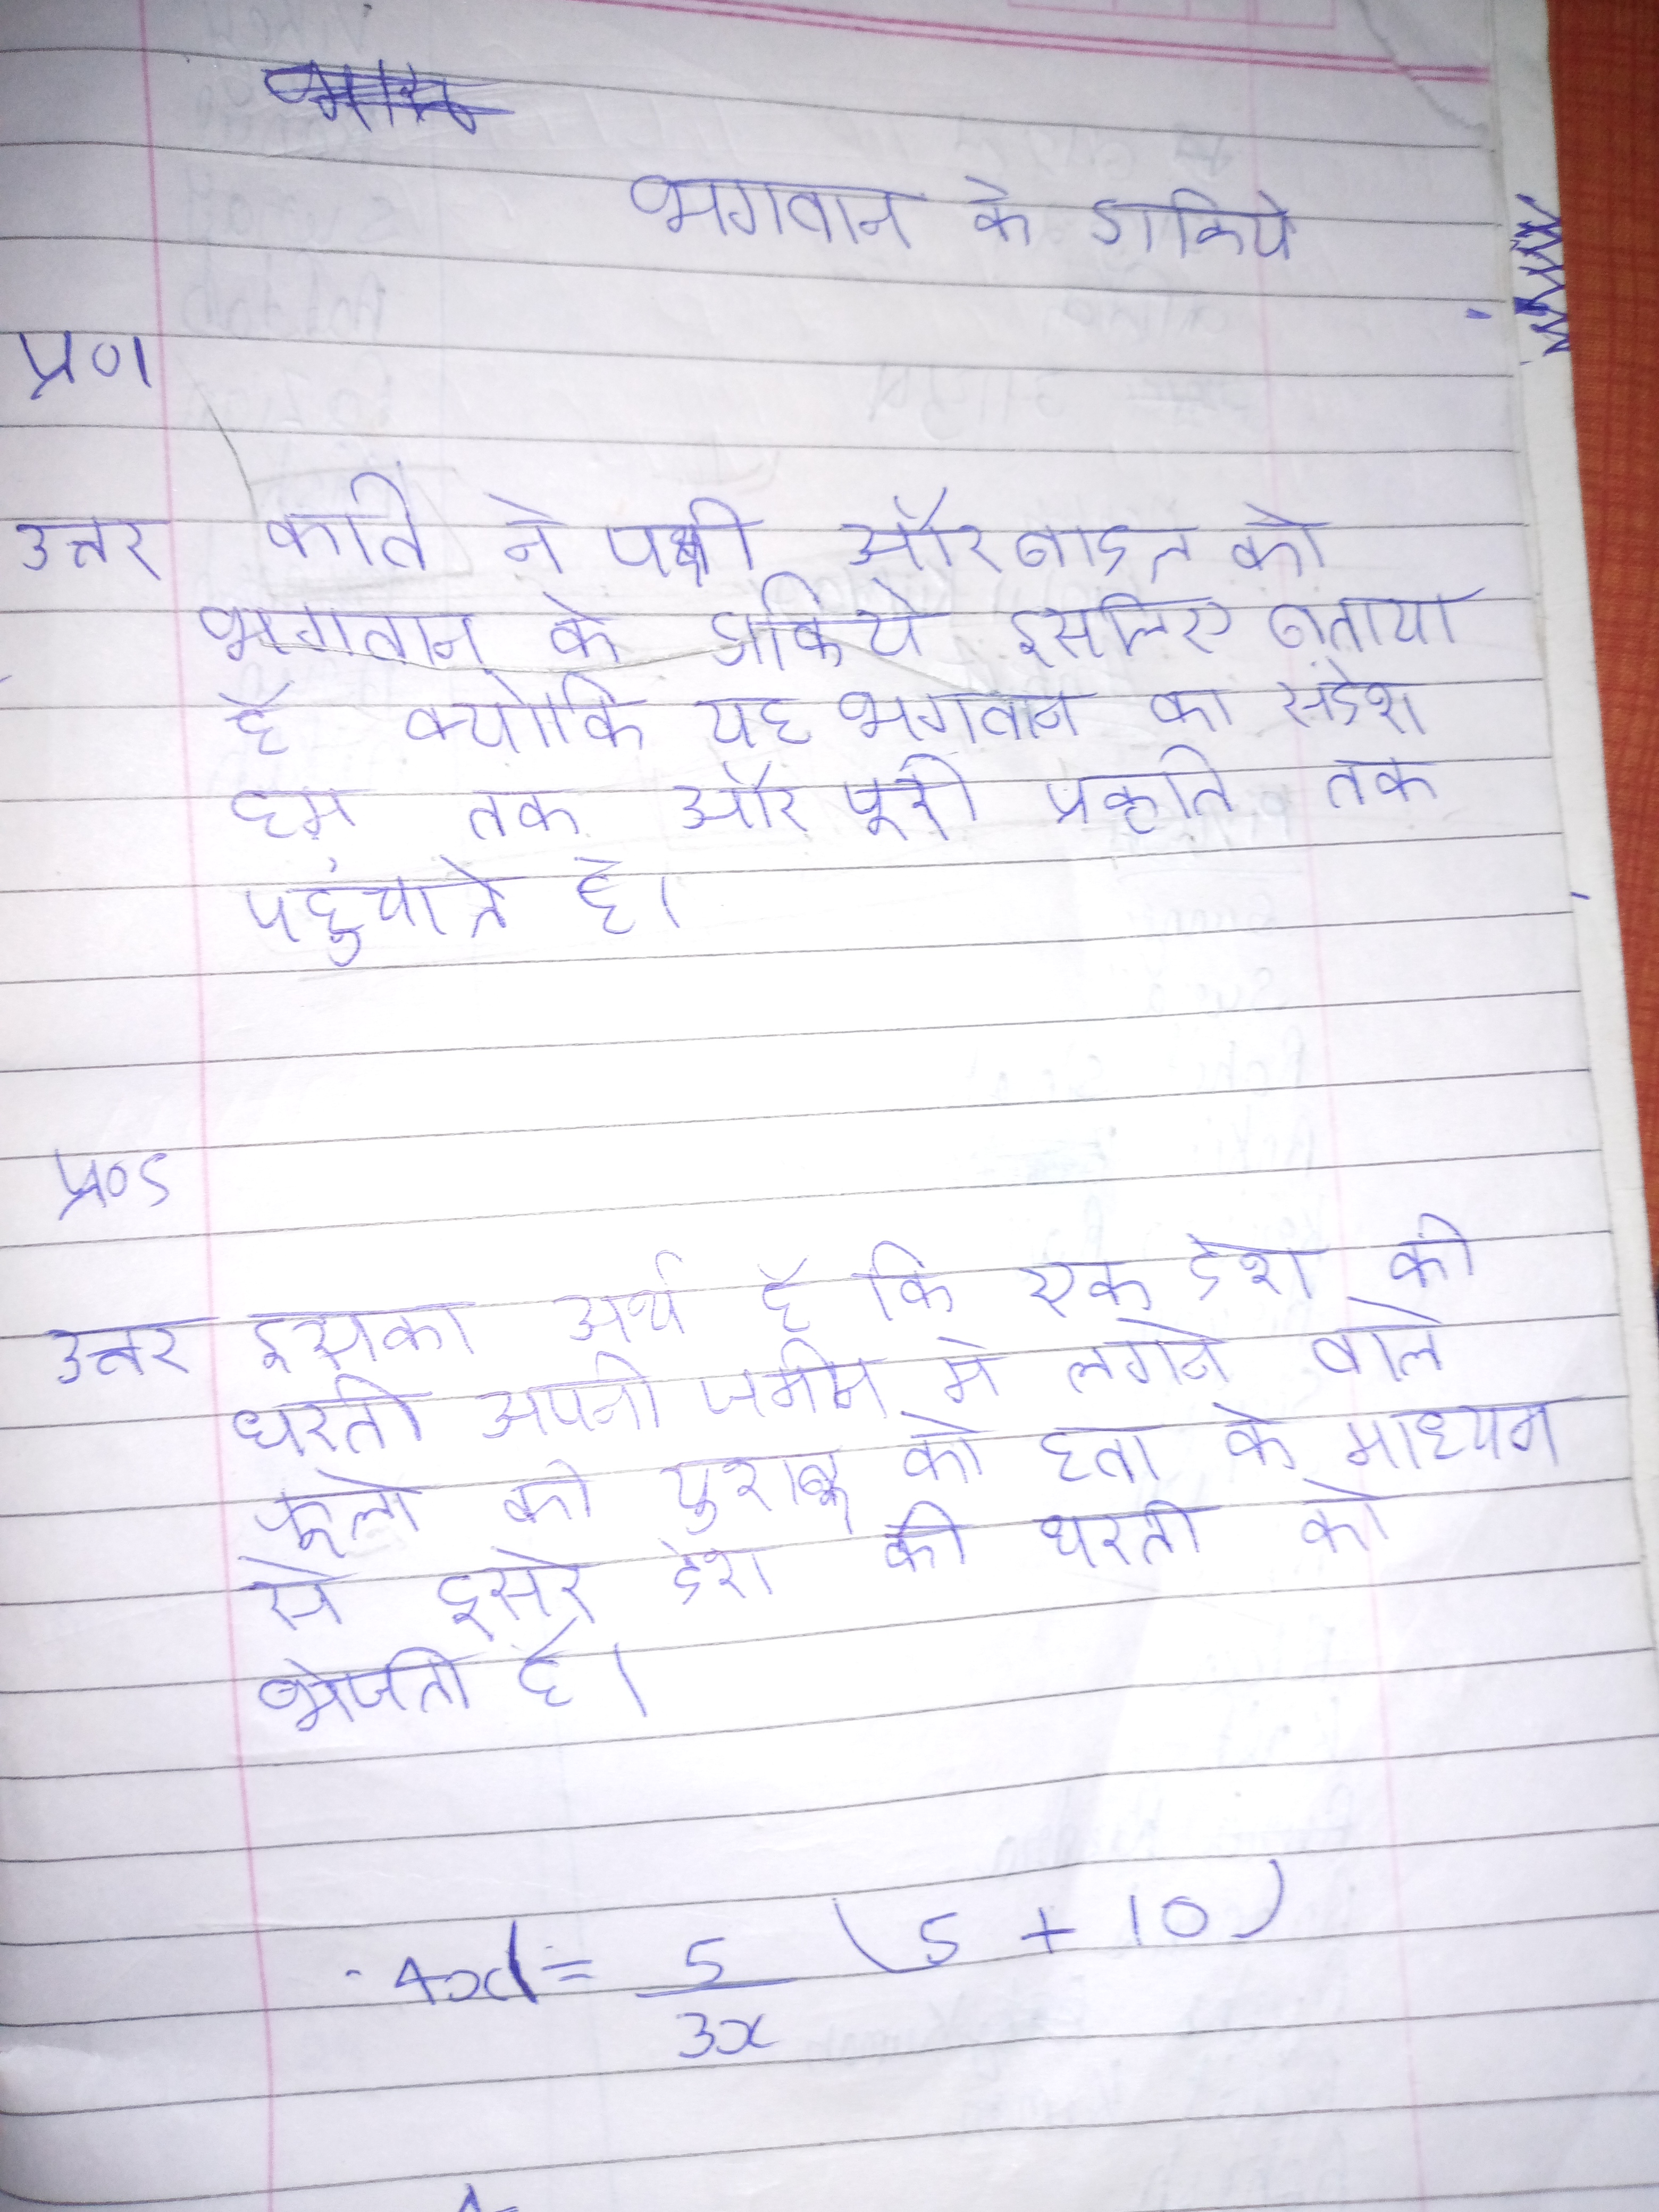 भगवान के डाकिये
प्र०1
उत्तर कवि ने पक्षी और बादल को
भगवान के डाकिये इसलिए बताया
है क्योकि यह भगवान का संदेश
हम तक और पूरी प्रकृति तक
पहुंचाते है।
प्र०5
उत्तर इसका अर्थ है कि एक देश की
धरती अपनी जमीन मे लगने वाले
फूलो की को हवा के माध्यम
से दूसरे देश की धरती को
भेजती है।
= 5/3x (5 + 10)